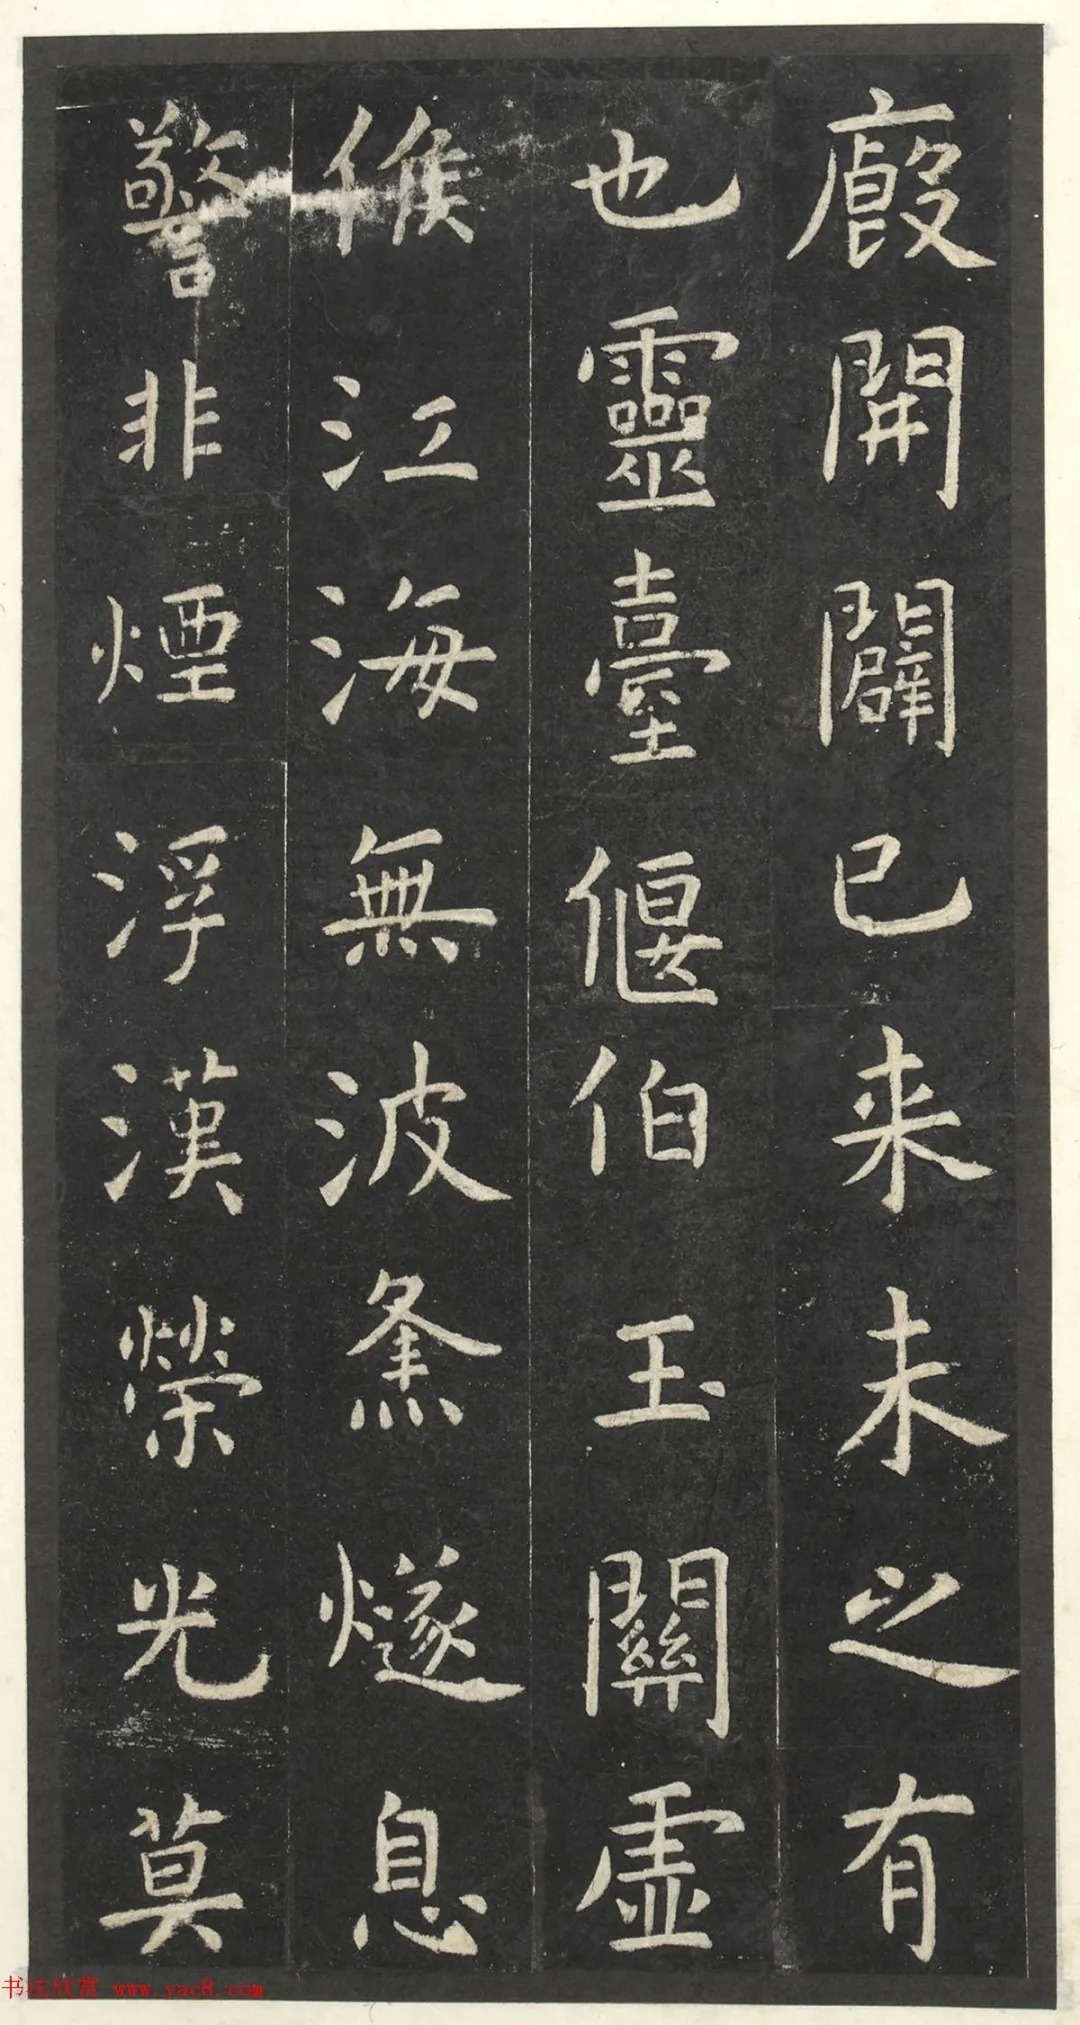 廄開闢已来未之有
也靈臺偃伯玉關虛
候江海無波㷭燧息
警非煙浮漢榮光莫
书法欣赏 www.yac8.com